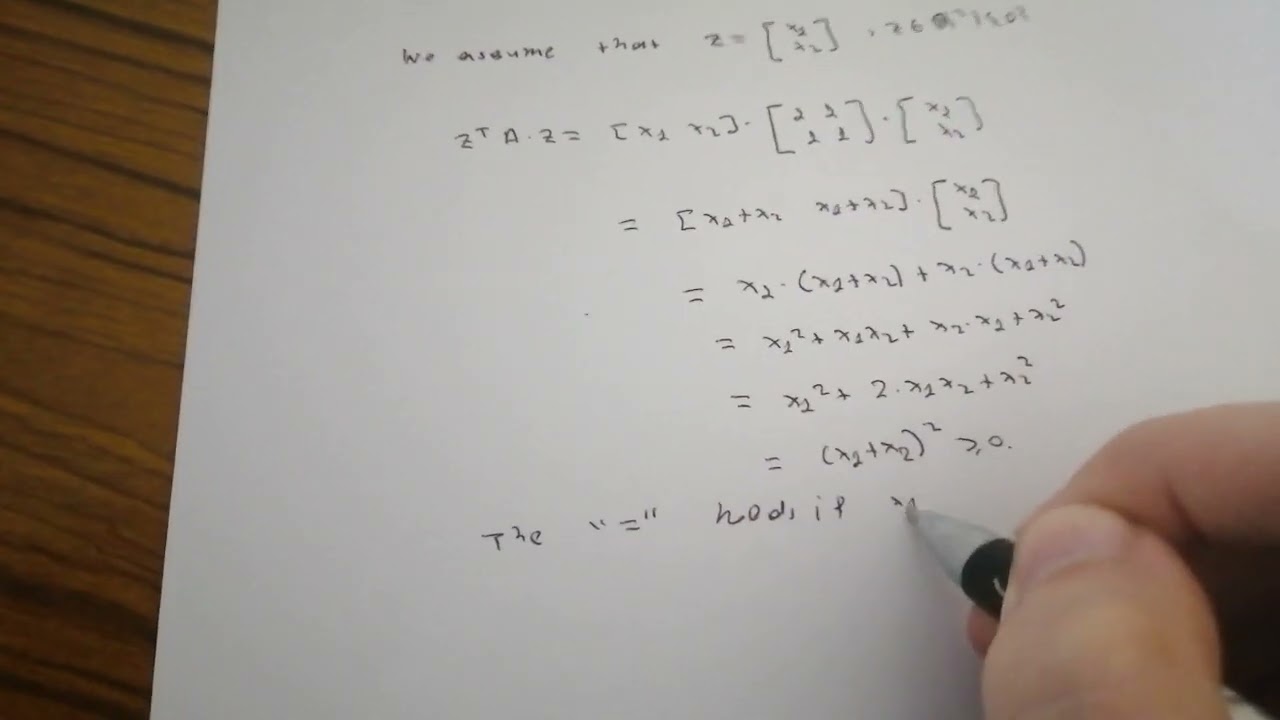 We assume that z = [x1 x2], z ∈
zᵀ A · z = [x1 x2] · [1 1 1 1] · [x1 x2]
= [x1+x2 x1+x2] · [x1 x2]
= x1 · (x1+x2) + x2 · (x1+x2)
= x1² + x1x2 + x2 · x1 + x2²
= x1² + 2 · x1x2 + x2²
= (x1+x2)² ≥ 0.
The "=" hods if x1